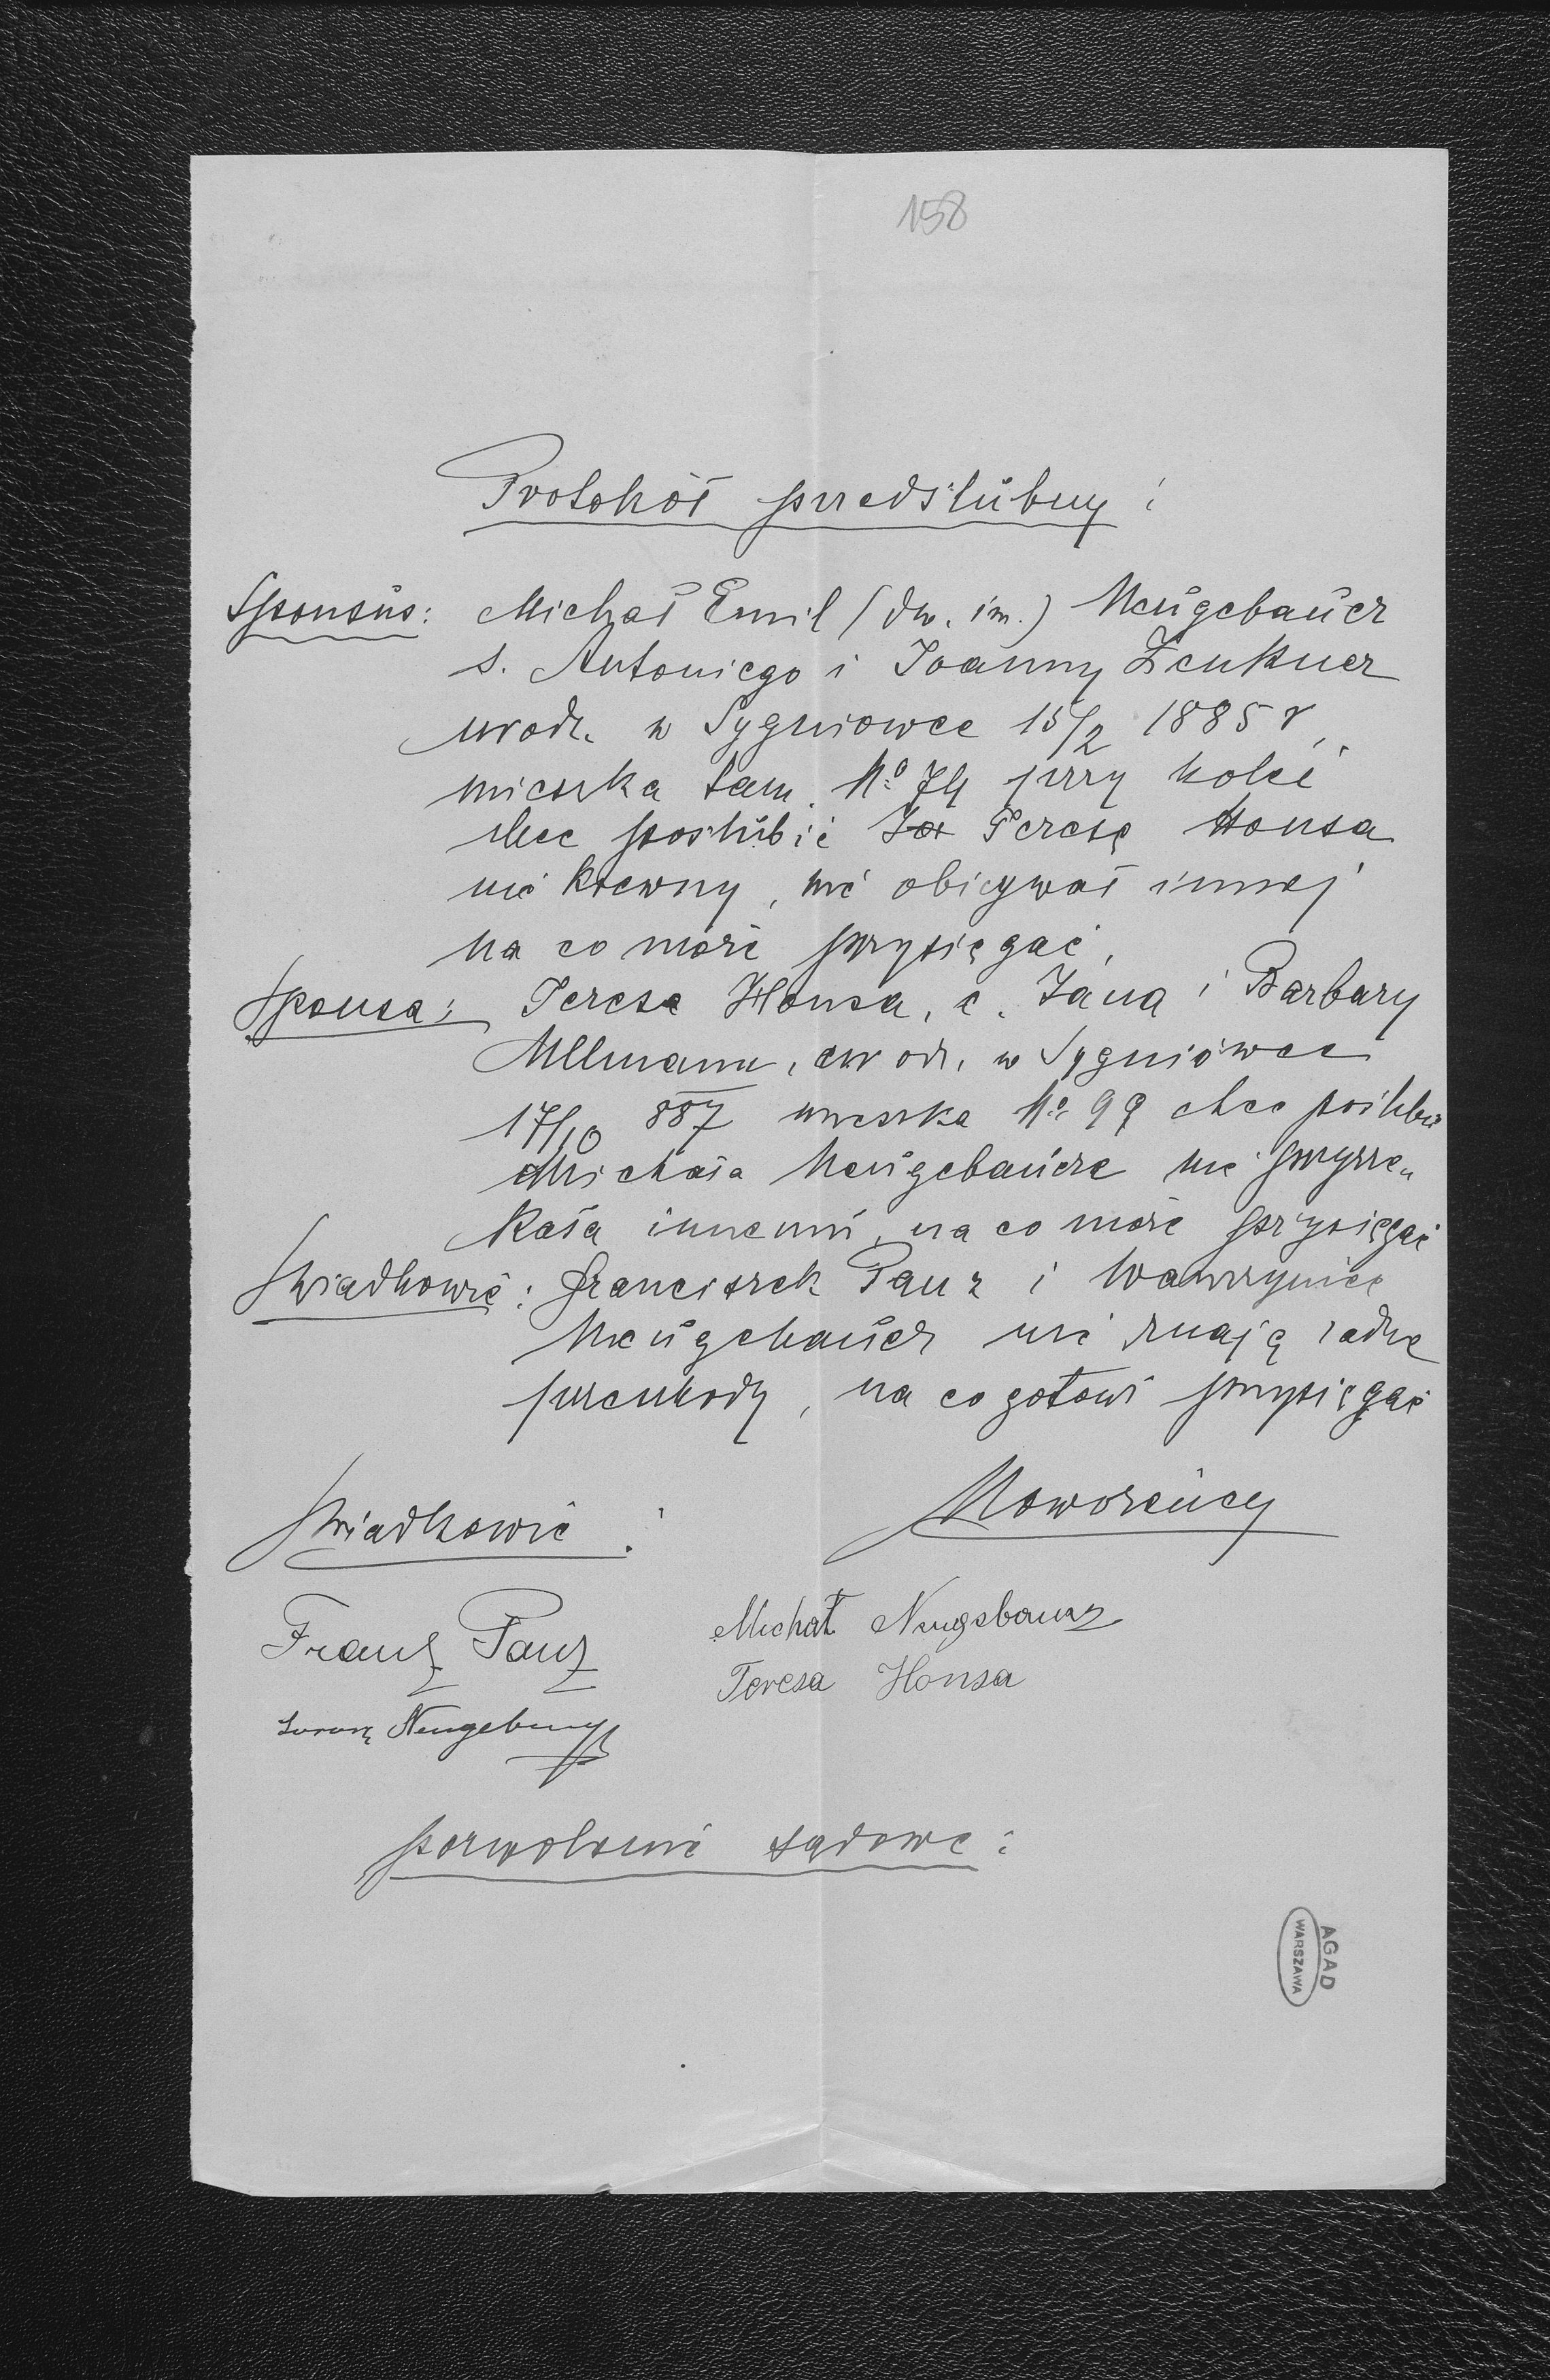 158
Protokół przedślubny :
Sponsus: Michał Emil (dw. im.) Neugebauer
s. Antoniego i Joanny Zenkner
urodz. w Sygniowce 15/2 1885 r.
mieszka tam. No 74 przy kolei
chce poślubić Teresę Honsa
nie krewny, nie obiecywał innej
na co może przysięgać.
Sponsa: Teresa Honsa, c. Jana i Barbary
Ullmann, urodz. w Sygniówce
17/10 887 mieszka No 99 chce poślubić
Michała Neugebauera nie przyrze-
kała innemu, na co może przysięgać
Świadkowie: Franciszek Panz i Wawrzyniec
Neugebauer nie znają żadne
przeszkody, na co gotowi przysięgać
Świadkowie : Nowożeńcy
Franz Panz Michał Neugebauer
Lorenz Neugebauer Teresa Honsa
pozwolenie sądowe :
AGAD
WARSZAWA